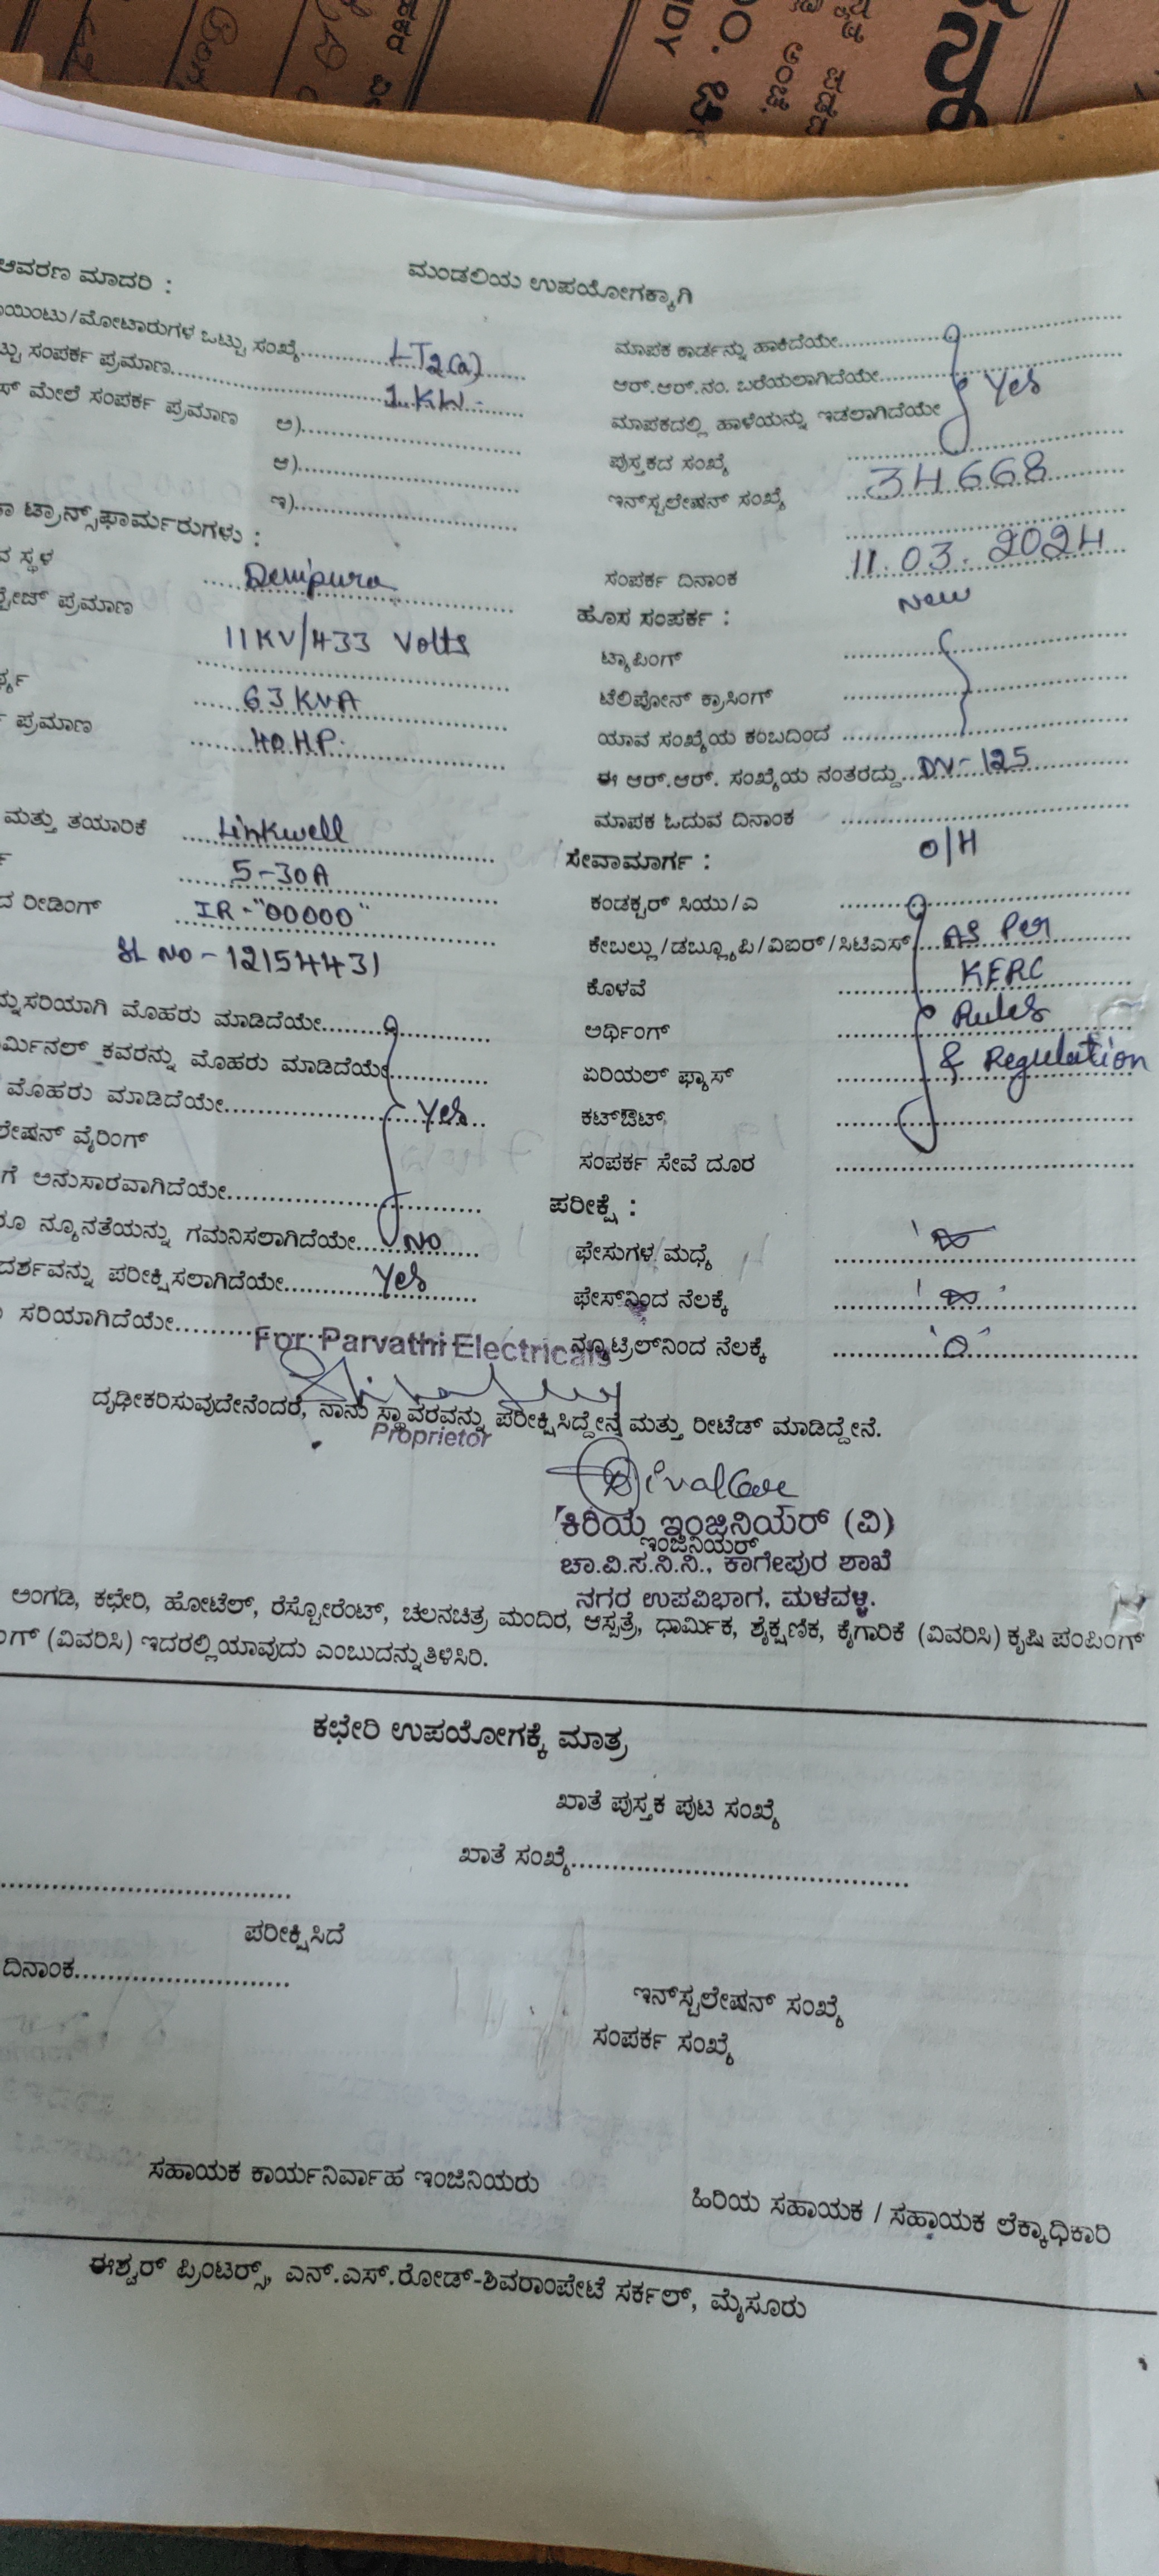 ಮಂಡಲಿಯ ಉಪಯೋಗಕ್ಕಾಗಿ
ಆವರಣ ಮಾದರಿ :
ಯಿಂಟು/ಮೋಟಾರುಗಳ ಒಟ್ಟು ಸಂಖ್ಯೆ.......... LT2(a)
ಟ್ಟು ಸಂಪರ್ಕ ಪ್ರಮಾಣ.......... 1 KW.
ಸ್ ಮೇಲೆ ಸಂಪರ್ಕ ಪ್ರಮಾಣ ಅ)..........
ಆ)..........
ಇ)..........
ಟ್ರಾನ್ಸ್‌ಫಾರ್ಮರುಗಳು :
ಸ್ಥಳ .......... Devipura
ಪ್ರಮಾಣ
11KV/433 Volts
63 KVA
ಪ್ರಮಾಣ .......... 40 HP.
ಮತ್ತು ತಯಾರಿಕೆ .......... Linkwell
5-30A
ದ ರೀಡಿಂಗ್ .......... IR - "00000"
SL NO - 12154431
ನ್ನು ಸರಿಯಾಗಿ ಮೊಹರು ಮಾಡಿದೆಯೇ..........
ರ್ಮಿನಲ್ ಕವರನ್ನು ಮೊಹರು ಮಾಡಿದೆಯೇ..........
ಮೊಹರು ಮಾಡಿದೆಯೇ.......... Yes
ಲೇಷನ್ ವೈರಿಂಗ್
ಗೆ ಅನುಸಾರವಾಗಿದೆಯೇ..........
ರೂ ನ್ಯೂನತೆಯನ್ನು ಗಮನಿಸಲಾಗಿದೆಯೇ.......... NO
ದರ್ಶವನ್ನು ಪರೀಕ್ಷಿಸಲಾಗಿದೆಯೇ.......... Yes
ಸರಿಯಾಗಿದೆಯೇ..........
ಮಾಪಕ ಕಾರ್ಡನ್ನು ಹಾಕಿದೆಯೇ..........
ಆರ್.ಆರ್.ನಂ. ಬರೆಯಲಾಗಿದೆಯೇ.......... Yes
ಮಾಪಕದಲ್ಲಿ ಹಾಳೆಯನ್ನು ಇಡಲಾಗಿದೆಯೇ
ಪುಸ್ತಕದ ಸಂಖ್ಯೆ ..........
ಇನ್‌ಸ್ಟಲೇಷನ್ ಸಂಖ್ಯೆ .......... 34668
ಸಂಪರ್ಕ ದಿನಾಂಕ .......... 11.03.2024
ಹೊಸ ಸಂಪರ್ಕ : New
ಟ್ಯಾಪಿಂಗ್ ..........
ಟೆಲಿಪೋನ್ ಕ್ರಾಸಿಂಗ್ ..........
ಯಾವ ಸಂಖ್ಯೆಯ ಕಂಬದಿಂದ ..........
ಈ ಆರ್.ಆರ್. ಸಂಖ್ಯೆಯ ನಂತರದ್ದು.......... DV-125
ಮಾಪಕ ಓದುವ ದಿನಾಂಕ ..........
ಸೇವಾಮಾರ್ಗ : O/H
ಕಂಡಕ್ಟರ್ ಸಿಯು/ಎ ..........
ಕೇಬಲ್ಲು/ಡಬ್ಲ್ಯೂಪಿ/ವಿಐರ್/ಸಿಟಿಎಸ್.......... As Per
ಕೊಳವೆ .......... KERC
ಅರ್ಥಿಂಗ್ .......... Rules
ಏರಿಯಲ್ ಫ್ಯಾಸ್ .......... & Regulation
ಕಟ್‌ಔಟ್ ..........
ಸಂಪರ್ಕ ಸೇವೆ ದೂರ ..........
ಪರೀಕ್ಷೆ :
ಫೇಸುಗಳ ಮಧ್ಯೆ ..........
ಫೇಸ್‌ನಿಂದ ನೆಲಕ್ಕೆ ..........
ನ್ಯೂಟ್ರಲ್‌ನಿಂದ ನೆಲಕ್ಕೆ .......... 'O'
For Parvathi Electricals
ದೃಢೀಕರಿಸುವುದೇನೆಂದರೆ, ನಾನು ಸ್ಥಾವರವನ್ನು ಪರೀಕ್ಷಿಸಿದ್ದೇನೆ ಮತ್ತು ರೀಟೆಡ್ ಮಾಡಿದ್ದೇನೆ.
Proprietor
ಕಿರಿಯ ಇಂಜಿನಿಯರ್ (ವಿ)
ಇಂಜಿನಿಯರ್
ಚಾ.ವಿ.ಸ.ನಿ.ನಿ., ಕಾಗೇಪುರ ಶಾಖೆ
ನಗರ ಉಪವಿಭಾಗ, ಮಳವಳ್ಳಿ.
ಅಂಗಡಿ, ಕಛೇರಿ, ಹೋಟೆಲ್, ರೆಸ್ಟೋರೆಂಟ್, ಚಲನಚಿತ್ರ ಮಂದಿರ, ಆಸ್ಪತ್ರೆ, ಧಾರ್ಮಿಕ, ಶೈಕ್ಷಣಿಕ, ಕೈಗಾರಿಕೆ (ವಿವರಿಸಿ) ಕೃಷಿ ಪಂಪಿಂಗ್
ಂಗ್ (ವಿವರಿಸಿ) ಇದರಲ್ಲಿ ಯಾವುದು ಎಂಬುದನ್ನು ತಿಳಿಸಿರಿ.
ಕಛೇರಿ ಉಪಯೋಗಕ್ಕೆ ಮಾತ್ರ
ಖಾತೆ ಪುಸ್ತಕ ಪುಟ ಸಂಖ್ಯೆ
ಖಾತೆ ಸಂಖ್ಯೆ..........
ಪರೀಕ್ಷಿಸಿದೆ
ದಿನಾಂಕ..........
ಇನ್‌ಸ್ಟಲೇಷನ್ ಸಂಖ್ಯೆ
ಸಂಪರ್ಕ ಸಂಖ್ಯೆ
ಸಹಾಯಕ ಕಾರ್ಯನಿರ್ವಾಹ ಇಂಜಿನಿಯರು
ಹಿರಿಯ ಸಹಾಯಕ / ಸಹಾಯಕ ಲೆಕ್ಕಾಧಿಕಾರಿ
ಈಶ್ವರ್ ಪ್ರಿಂಟರ್ಸ್, ಎನ್.ಎಸ್.ರೋಡ್-ಶಿವರಾಂಪೇಟೆ ಸರ್ಕಲ್, ಮೈಸೂರು